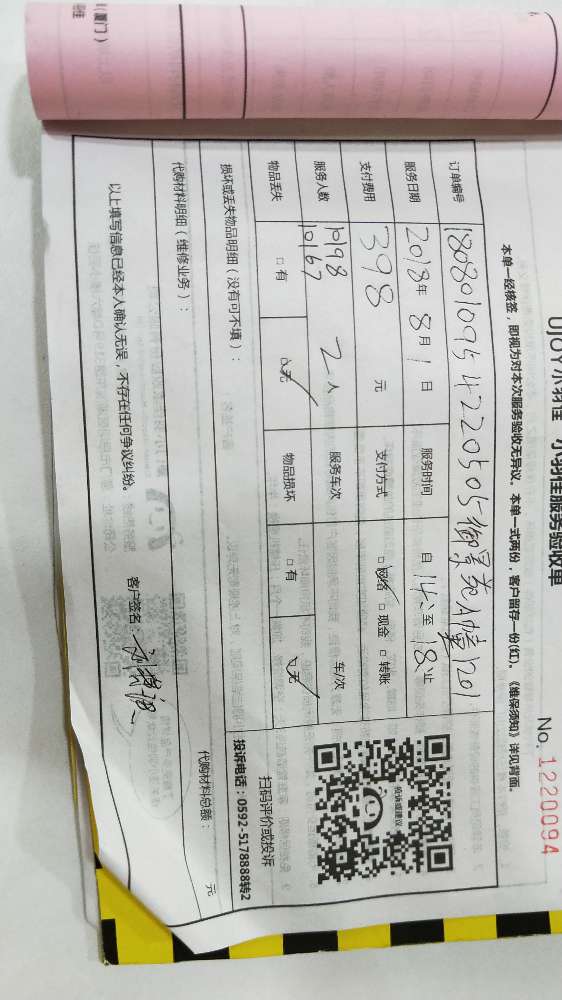 UJOY小羽佳 小羽佳服务验收单
No. 1220094
本单一经核签，即视为对本次服务验收无异议。本单一式两份，客户留存一份(红)。《维保须知》详见背面。
订单编号 1808010954220505御景苑A幢1201
服务日期 2018年 8月 1日 服务时间 自 14:至 18止
支付费用 398 元 支付方式 □网络 □现金 □转账
服务人数 10198 10167 2人 服务车次 车/次
物品丢失 □有 □无 物品损坏 □有 □无
损坏或丢失物品明细（没有可不填）：
代购材料明细（维修业务）：
代购材料总额： 元
以上填写信息已经本人确认无误，不存在任何争议纠纷。
客户签名：
投诉或建议
扫码评价或投诉
投诉电话：0592-5178888转2
(厦门)